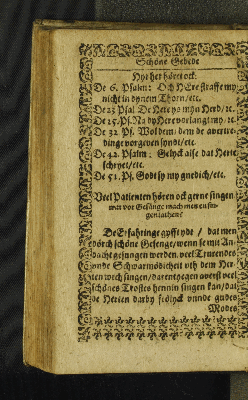 Schöne Gebede
Hyr her höret ock:
De 6. Psalm: Och HEre straffe my
nicht in dynem Thorn/etc.
De 23 Psal De Here ys myn Herd/ ꝛc.
De 25. Ps. Na dy Here vorlangt my/ ꝛc
De 32 Ps. Wol dem/ dem de auertre-
dinge vorgeuen synd/ etc.
De 42. Psalm: Gelyck alse dat Herte
schryet/etc.
De 51. Ps. Godt sy my gnedich/etc.
Veel Patienten hören ock gerne singen
wat vor Gesänge mach men en sin-
gen lathen?
De Erfahringe gyfft ydt / dat men
dörch schöne Gesenge/ wenn se mit An-
dacht gesungen werden, veel Truwendes
vnde Schwarmödicheit vth dem Her-
ten wech singen/ darentyegen auerst veel
schönes Trostes herin singen kan/ dat
de Herten darby frölyck vnnde gudes
Modes